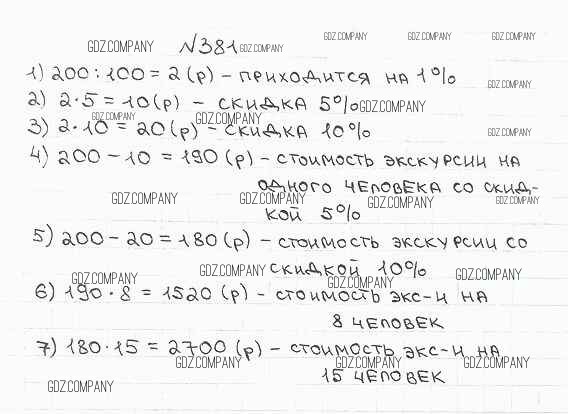 GDZ.COMPANY №381 GDZ.COMPANY GDZ.COMPANY GDZ.COMPANY GDZ.COMPANY
1) 200 : 100 = 2 (р) – приходится на 1%
GDZ.COMPANY
2) 2·5 = 10 (р) – скидка 5% GDZ.COMPANY
GDZ.COMPANY GDZ.COMPANY
3) 2·10 = 20 (р) – скидка 10% GDZ.COMPANY
4) 200 – 10 = 190 (р) – стоимость экскурсии на
одного человека со скид-
GDZ.COMPANY GDZ.COMPANY GDZ.COMPANY GDZ.COMPANY
кой 5%
5) 200 – 20 = 180 (р) – стоимость экскурсии со
GDZ.COMPANY GDZ.COMPANY скидкой 10% GDZ.COMPANY
GDZ.COMPANY
6) 190 · 8 = 1520 (р) – стоимость экс-и на
8 человек
7) 180 · 15 = 2700 (р) – стоимость экс-и на
GDZ.COMPANY GDZ.COMPANY GDZ.COMPANY
15 человек
GDZ.COMPANY